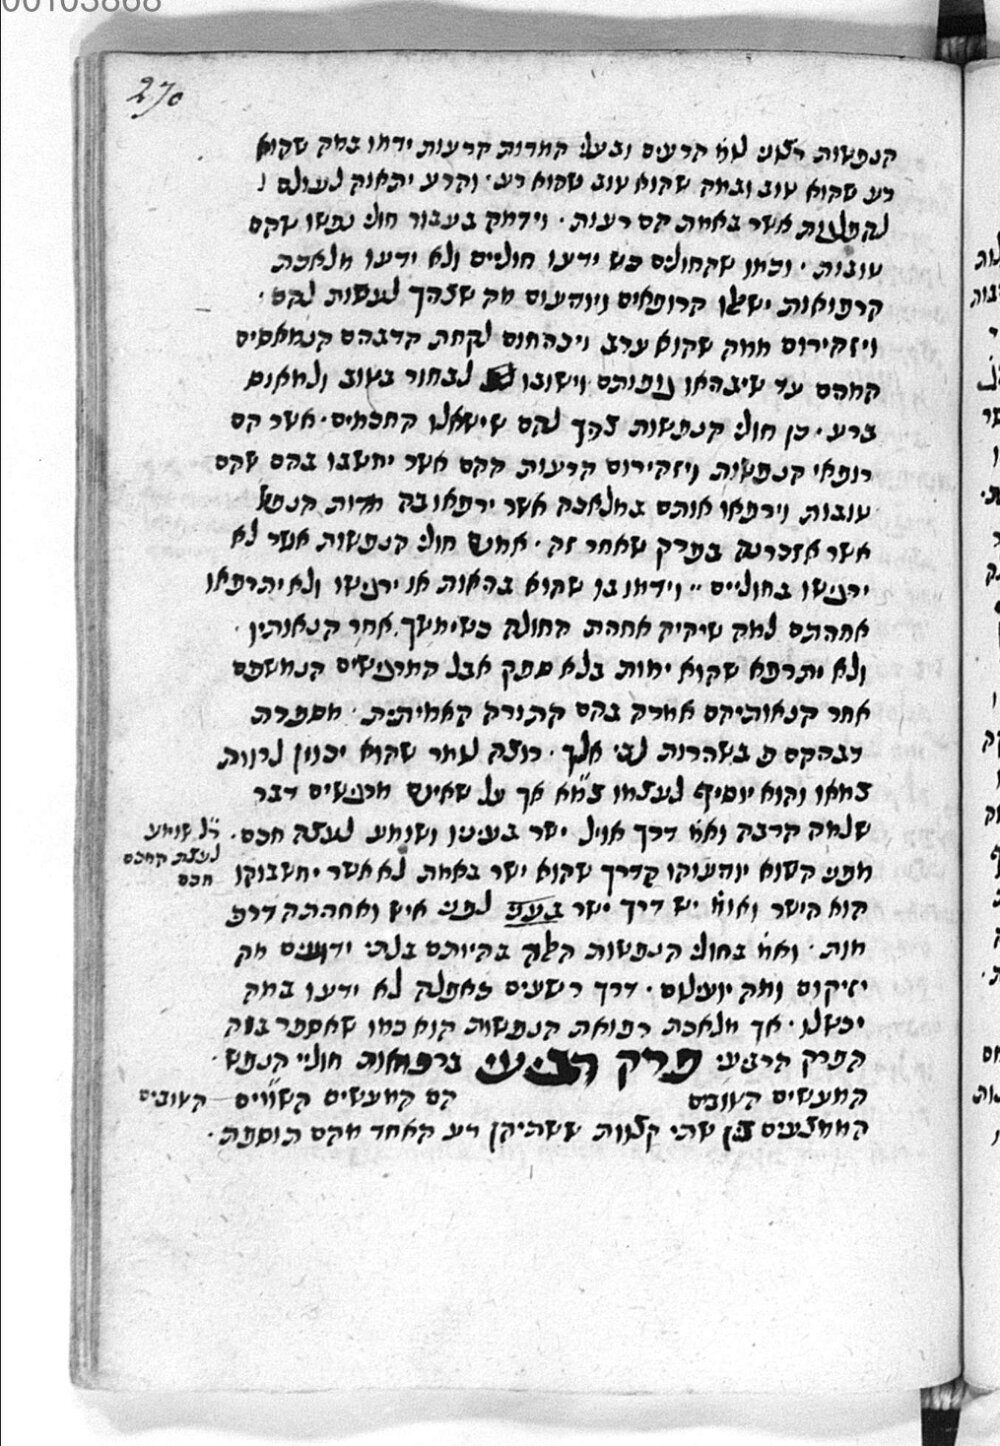 00103868
270
הנפשות רצוני לומ׳ הרעים ובעלי המדות הרעות ידמו במה שהוא
רע שהוא טוב ובמה שהוא טוב שהוא רע · והרע יתאוה לעולם
לתכליות אשר באמת הם רעות · וידמה בעבור חולי נפשו שהם
טובות · וכמו שהחולים כש ידעו חוליים ולא ידעו מלאכת
הרפואות ישאלו הרופאים ויודיעום מה שצריך לעשות להם ·
ויזהירום ממה שהוא ערב ויכריחום לקחת הדברים הנמאסים
המרים עד שיבריאו גופותם וישובו לבחור בטוב ולמאוס
ברע · כן חולי הנפשות צריך להם שישאלו החכמים · אשר הם
רופאי הנפשות ויזהירום הרעות ההם אשר יחשבו בהם שהם
טובות וירפאו אותם במלאכה אשר ירפאו בה מדות הנפש
אשר אזכרנה בפרק שאחר זה · אמנם חולי הנפשות אשר לא
ירגישו בחוליים וידמו בו שהוא בריאות או ירגישו ולא יתרפאו
אחריתם למה שיהיה אחרית החולה כשימשך אחר הנאותיו ·
ולא יתרפא שהוא ימות בלא ספק אבל המרגישים הנמשכים
אחר הנאותיהם אמרה בהם התורה האמיתית · מספרת
דבריהם כי בשרירות לבי אלך · רוצה לומר שהוא יכוין לרוות
צמאו והוא יוסיף לעצמו צמא אך על שאינם מרגישים דבר
שלמה הרבה ואמ׳ דרך אויל ישר בעיניו ושומע לעצה חכם ·
ר״ל שומע
לעצת החכם
חכם
מפני שהוא יודיעוהו הדרך שהוא ישר באמת לא אשר יחשבוהו
הוא הישר ואומ׳ יש דרך ישר לפני איש ואחריתה דרכי
מות · ואמ׳ בחולי הנפשות האלה בהיותם בלתי יודעים מה
יזיקום ומה יועילום · דרך רשעים כאפלה לא ידעו במה
יכשלו · אך מלאכת רפואת הנפשות הוא כמו שאספר בזה
הפרק הרביעי פרק רביעי ברפואות חוליי הנפש ·
המעשים הטובים הם המעשים השווים הטובים
הממוצעים בין שתי קצוות ששתיהן רע האחד מהם תוספת ·